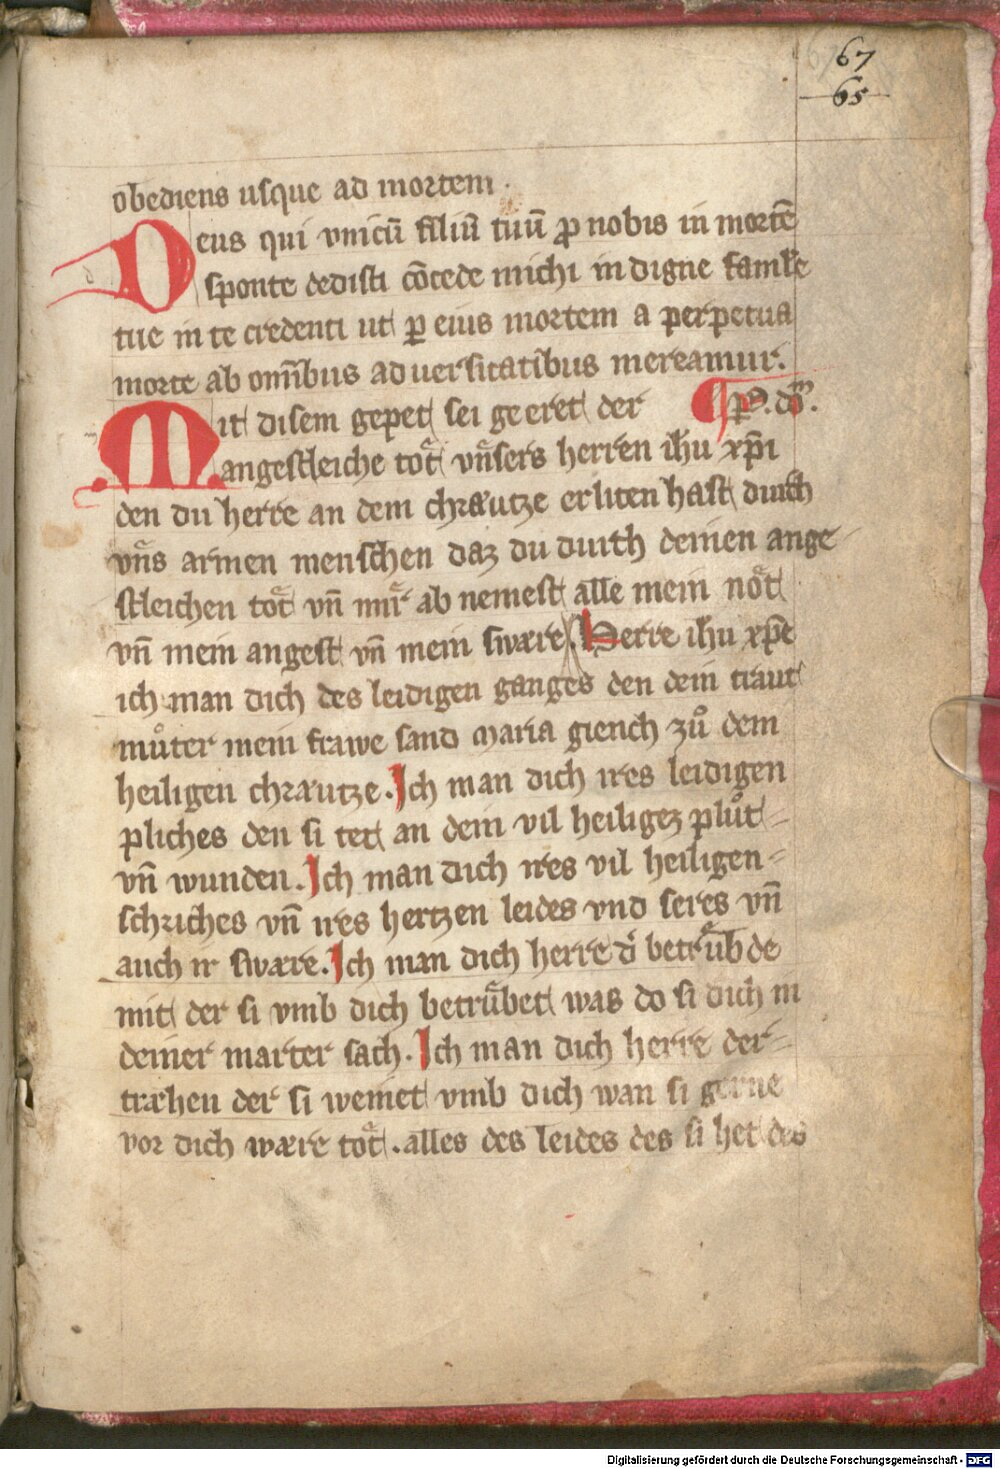 67
65
obediens usque ad mortem.
Deus qui vnicū filiū tuū ꝓ nobis in mortē
sponte dedisti cōcede michi indigne famłe
tue in te credenti ut ꝑ eius mortem a perpetua
morte ab om̄ibus aduersitatibus mereamur.
Mit disem gepet sei geeret der ¶ p͛. dōm.
angestleiche tot̎ vn̄sers herren ihu xp̄i
den du herre an dem chræutze erliten hast durch
vn̄s armen menschen daz du durch deinen ange
stleichen tot̎ vn̄ mir̎ ab nemest alle mein not̎
vn̄ mein angest vn̄ mein swære. Herre ihu xp̄e
ich man dich des leidigen ganges den dein traut
můter mein frawe sand maria giench zů dem
heiligen chræutze. Ich man dich ires leidigen
pliches den si tet an dem vil heiligez plůt
vn̄ wunden. Ich man dich ires vil heiligen
schriches vn̄ ires hertzen leides vnd seres vn̄
auch ir swære. Ich man dich herre d͛ betrűbde
mit der si vmb dich betrűbet was do si dich in
deiner marter sach. Ich man dich herre der
træhen der si weinet vmb dich wan si gerne
vor dich wære tot̎. alles des leides des si het des
Digitalisierung gefördert durch die Deutsche Forschungsgemeinschaft - DFG